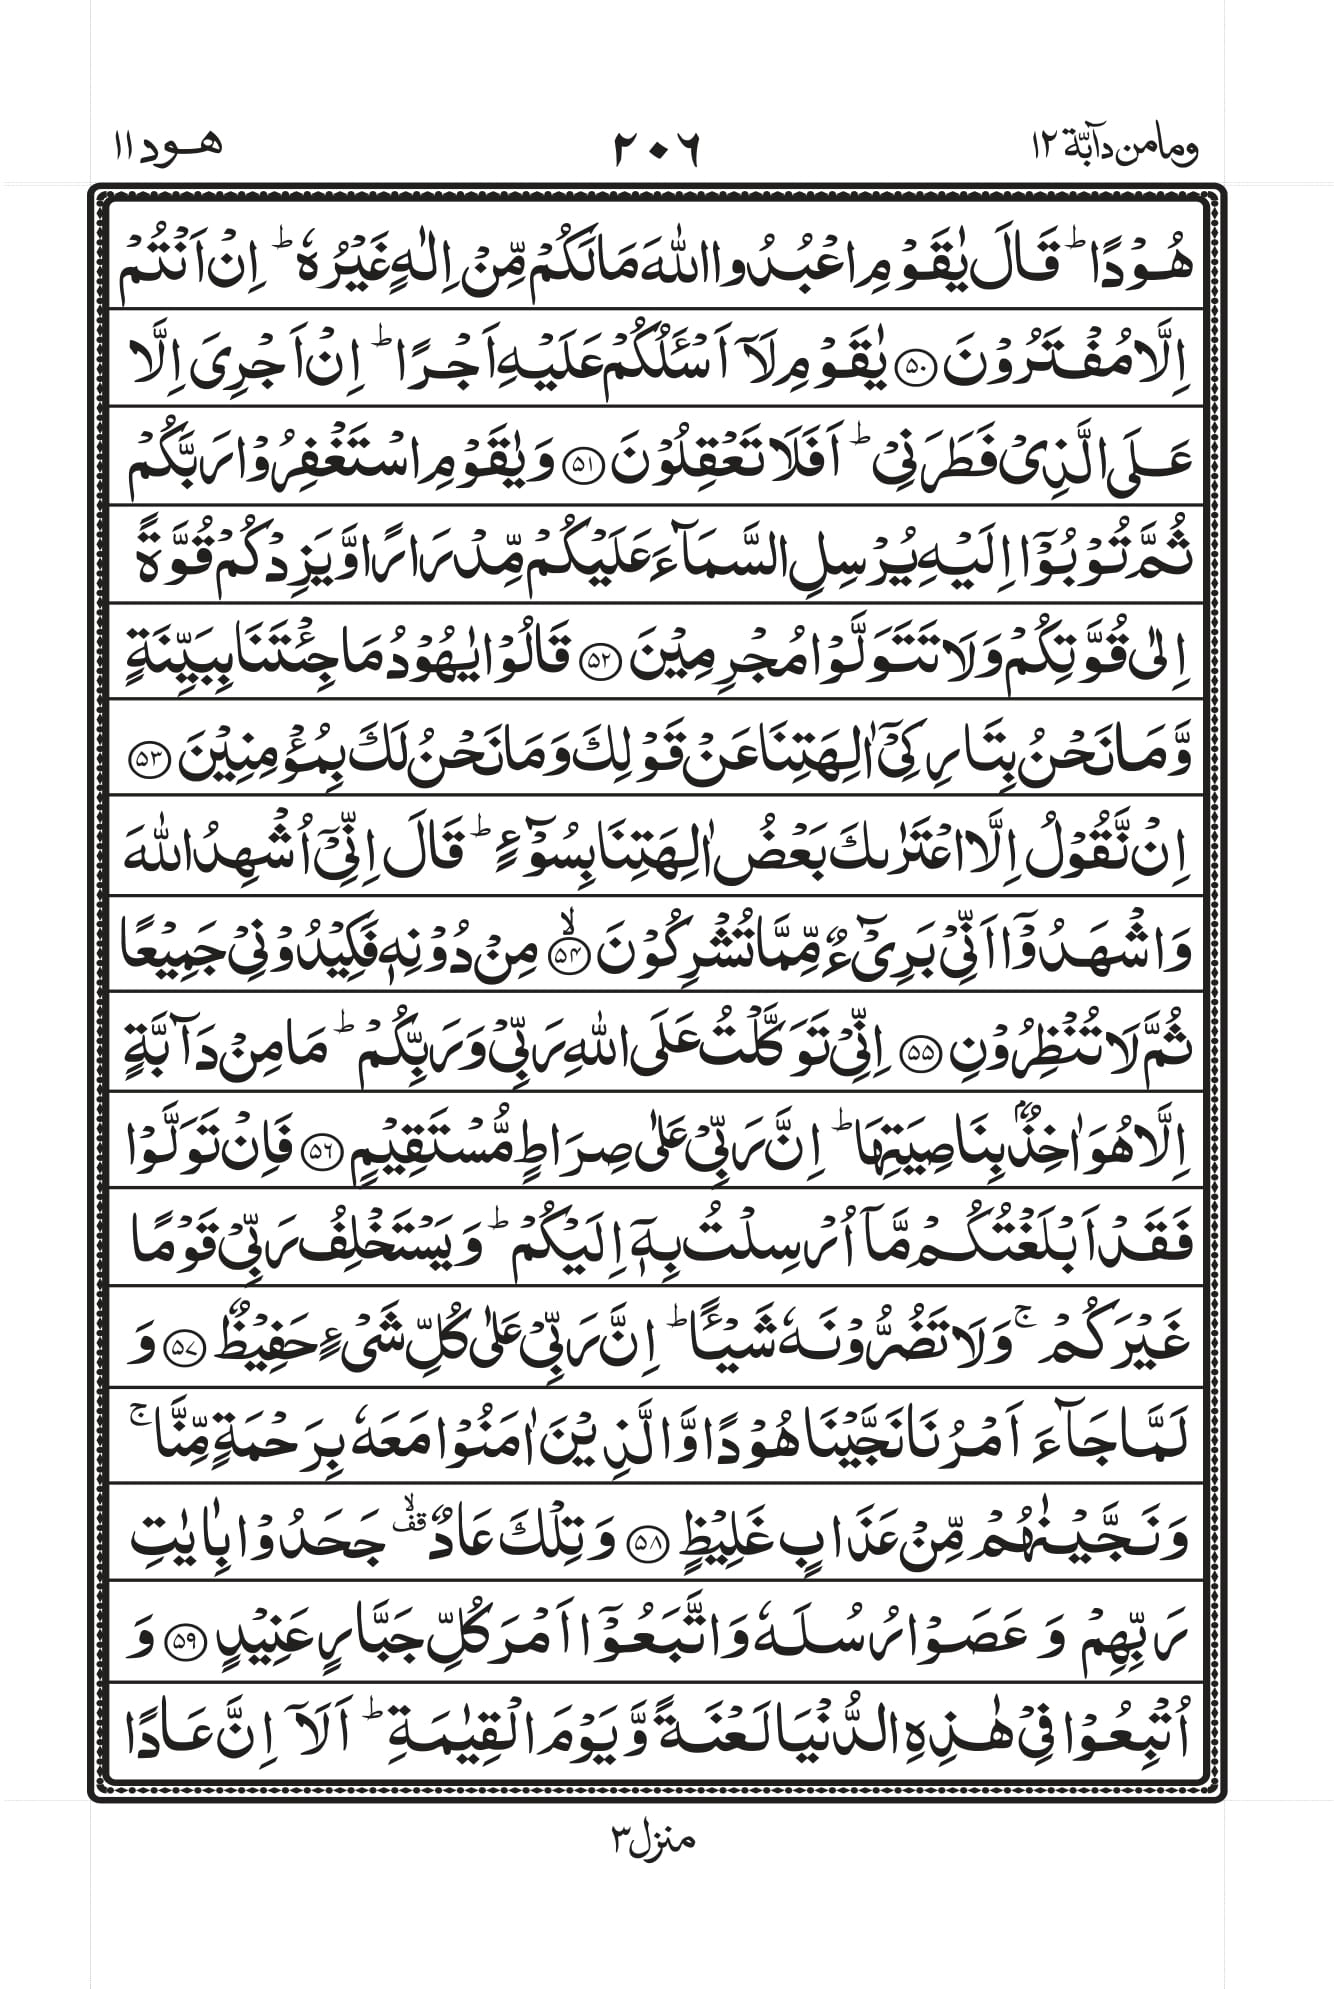 ومامن دآبّة ١٢ ٢٠٦ هود ١١
هُوْدًا ؕ قَالَ يٰقَوْمِ اعْبُدُوا اللّٰهَ مَا لَكُمْ مِّنْ اِلٰهٍ غَيْرُهٗ ؕ اِنْ اَنْتُمْ
اِلَّا مُفْتَرُوْنَ ۝۵۰ يٰقَوْمِ لَاۤ اَسْـَٔلُكُمْ عَلَيْهِ اَجْرًا ؕ اِنْ اَجْرِىَ اِلَّا
عَلَى الَّذِىْ فَطَرَنِىْ ؕ اَفَلَا تَعْقِلُوْنَ ۝۵۱ وَيٰقَوْمِ اسْتَغْفِرُوْا رَبَّكُمْ
ثُمَّ تُوْبُوْۤا اِلَيْهِ يُرْسِلِ السَّمَآءَ عَلَيْكُمْ مِّدْرَارًا وَّيَزِدْكُمْ قُوَّةً
اِلٰى قُوَّتِكُمْ وَلَا تَتَوَلَّوْا مُجْرِمِيْنَ ۝۵۲ قَالُوْا يٰهُوْدُ مَا جِئْتَنَا بِبَيِّنَةٍ
وَّمَا نَحْنُ بِتَارِكِىْۤ اٰلِهَتِنَا عَنْ قَوْلِكَ وَمَا نَحْنُ لَكَ بِمُؤْمِنِيْنَ ۝۵۳
اِنْ نَّقُوْلُ اِلَّا اعْتَرٰىكَ بَعْضُ اٰلِهَتِنَا بِسُوْٓءٍ ؕ قَالَ اِنِّىْۤ اُشْهِدُ اللّٰهَ
وَاشْهَدُوْۤا اَنِّىْ بَرِىْٓءٌ مِّمَّا تُشْرِكُوْنَ ۙ‏۝۵۴ مِنْ دُوْنِهٖ فَكِيْدُوْنِىْ جَمِيْعًا
ثُمَّ لَا تُنْظِرُوْنِ ۝۵۵ اِنِّىْ تَوَكَّلْتُ عَلَى اللّٰهِ رَبِّىْ وَرَبِّكُمْ ؕ مَا مِنْ دَآبَّةٍ
اِلَّا هُوَ اٰخِذٌۢ بِنَاصِيَتِهَا ؕ اِنَّ رَبِّىْ عَلٰى صِرَاطٍ مُّسْتَقِيْمٍ ۝۵۶ فَاِنْ تَوَلَّوْا
فَقَدْ اَبْلَغْتُكُمْ مَّاۤ اُرْسِلْتُ بِهٖۤ اِلَيْكُمْ ؕ وَيَسْتَخْلِفُ رَبِّىْ قَوْمًا
غَيْرَكُمْ ۚ وَلَا تَضُرُّوْنَهٗ شَيْـًٔا ؕ اِنَّ رَبِّىْ عَلٰى كُلِّ شَىْءٍ حَفِيْظٌ ۝۵۷ وَ
لَمَّا جَآءَ اَمْرُنَا نَجَّيْنَا هُوْدًا وَّالَّذِيْنَ اٰمَنُوْا مَعَهٗ بِرَحْمَةٍ مِّنَّا ۚ
وَنَجَّيْنٰهُمْ مِّنْ عَذَابٍ غَلِيْظٍ ۝۵۸ وَتِلْكَ عَادٌ ۙقف جَحَدُوْا بِاٰيٰتِ
رَبِّهِمْ وَعَصَوْا رُسُلَهٗ وَاتَّبَعُوْۤا اَمْرَ كُلِّ جَبَّارٍ عَنِيْدٍ ۝۵۹ وَ
اُتْبِعُوْا فِىْ هٰذِهِ الدُّنْيَا لَعْنَةً وَّيَوْمَ الْقِيٰمَةِ ؕ اَلَاۤ اِنَّ عَادًا
منزل ٣